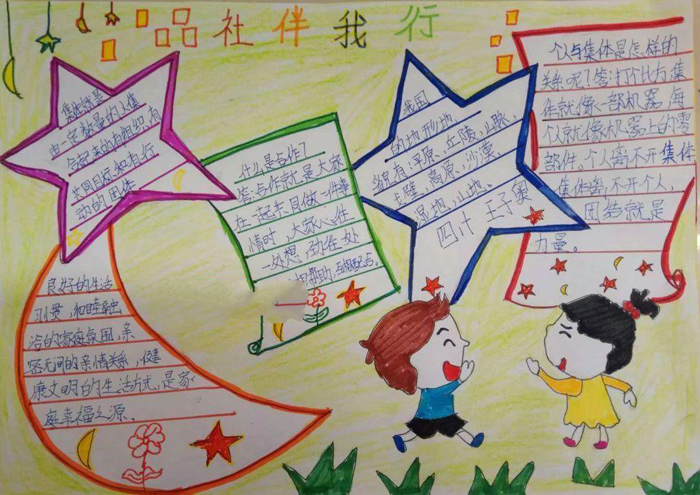 品社伴我行
集体就是
由一定数量的人集
合起来的有组织,有
共同目标和有行
动的团体
什么是合作?
答:合作就是大家
在一起共同做一件事
情时,大家心往
一处想,劲往一处
我国
的地形地
貌有:平原、丘陵、山脉、
戈壁、高原、沙漠、
湿地、山地、
四汁 王子奥
个人与集体是怎样的
关系呢?答:打个比方,集
体就像一部机器,每
个人就像机器上的零
部件。个人离不开集体
集体离不开个人,
团结就是
力量。
良好的生活
习惯,和睦融
洽的家庭氛围,亲
密无间的亲情关系,健
康文明的生活方式,是家
庭幸福之源、